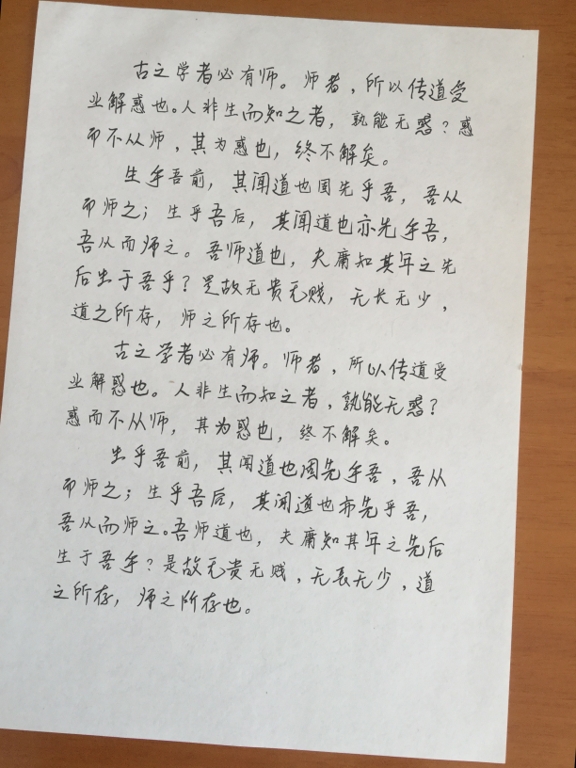 古之学者必有师。师者，所以传道受
业解惑也。人非生而知之者，孰能无惑？惑
而不从师，其为惑也，终不解矣。
生乎吾前，其闻道也固先乎吾，吾从
而师之；生乎吾后，其闻道也亦先乎吾，
吾从而师之。吾师道也，夫庸知其年之先
后生于吾乎？是故无贵无贱，无长无少，
道之所存，师之所存也。
古之学者必有师。师者，所以传道受
业解惑也。人非生而知之者，孰能无惑？
惑而不从师，其为惑也，终不解矣。
生乎吾前，其闻道也固先乎吾，吾从
而师之；生乎吾后，其闻道也亦先乎吾，
吾从而师之。吾师道也，夫庸知其年之先后
生于吾乎？是故无贵无贱，无长无少，道
之所存，师之所存也。